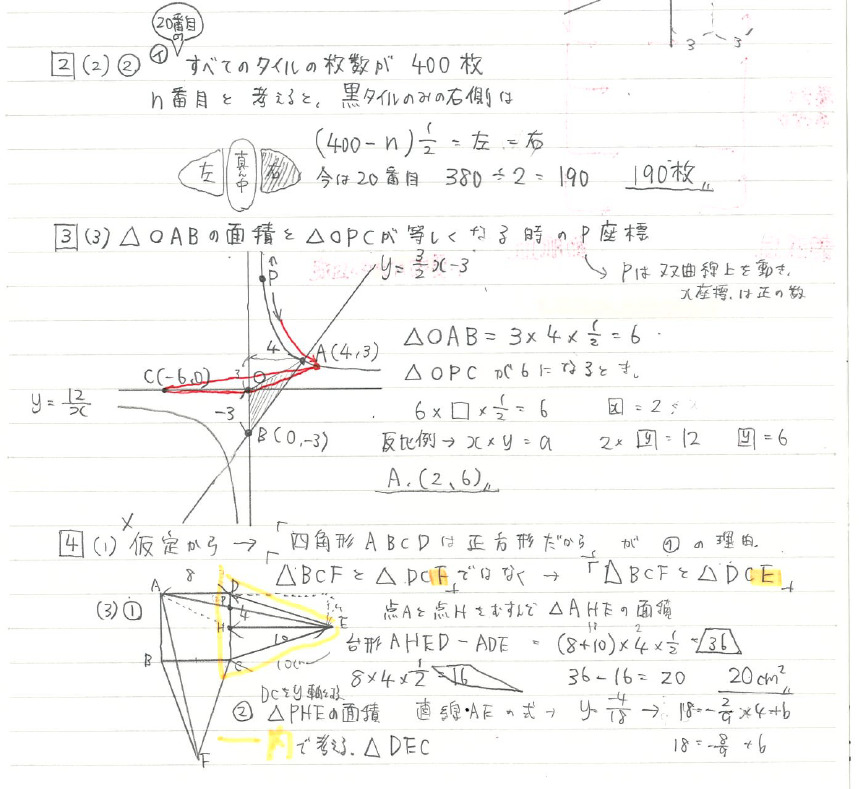 20番目の
3 3
2 (2) ② ㋑ すべてのタイルの枚数が 400枚
n番目と考えると、黒タイルのみの右側は
(400-n)1/2 = 左 = 右
左 真ん中 右
今は20番目 380÷2=190 190枚
3 (3) △OABの面積と△OPCが等しくなる時のP座標
y=3/2x-3
→ Pは双曲線上を動き、
x座標は正の数
P
4
A(4,3)
△OAB=3×4×1/2=6
C(-6,0)
O
△OPCが6になるとき、
y=12/x
-3
6×□×1/2=6 x=2
B(0,-3)
反比例→x×y=a 2×y=12 y=6
A.(2,6)
4 (1) 仮定から→「四角形ABCDは正方形だから」が ① の理由.
「△BCFと△DCFではなく→「△BCFと△DCE」
8
A D
(3)①
P
4
H
E
点Aと点Hをむすんで△AHEの面積
台形AHED-ADE = (8+10)×4×1/2=36
B C
10
8×4×1/2=16 36-16=20 20cm²
DCをy軸
② △PHEの面積 直線・AEの式→ y=-4/18 → 18=-2/9×4+b
F
内で考える.△DEC
18=-8/9+b